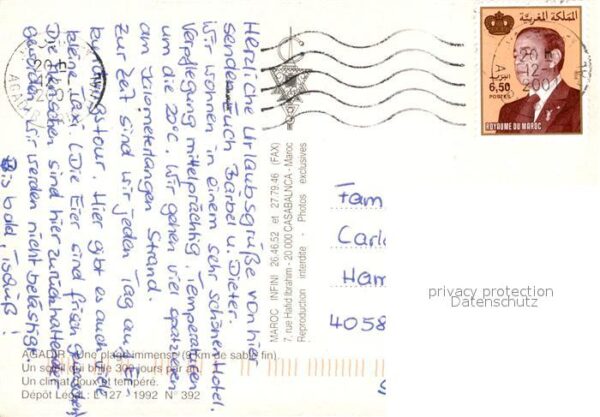 Herzliche Urlaubsgrüße von hier
senden euch Bärbel u. Dieter.
Wir wohnen in einem sehr schönen Hotel.
Verpflegung mittelprächtig, Temperaturen
um die 20°C. Wir gehen viel spazieren
am kilometerlangen Strand.
Zur Zeit sind wir jeden Tag auf Er-
kundungstour. Hier gibt es auch viele
kleine Taxi. (Die Eier sind frisch
Die Menschen sind hier zurückhaltender
Wir werden nicht belästigt.
Bis bald, Tschüß!
MAROC INFINI 26.46.52 et 27.79.46 (FAX)
7, rue Hafid Ibrahim - 20 000 CASABALNCA - Maroc
Reproduction interdite - Photos exclusives
المملكة المغربية
20
12
2001
6,50
POSTES
ROYAUME DU MAROC
Fam
Carl
Ham
4058
privacy protection
Datenschutz
AGADIR - Une plage immense (9 km de sable fin).
Un soleil qui brille 300 jours par an.
Un climat doux et tempéré.
Dépôt Légal : L 127 - 1992 N° 392